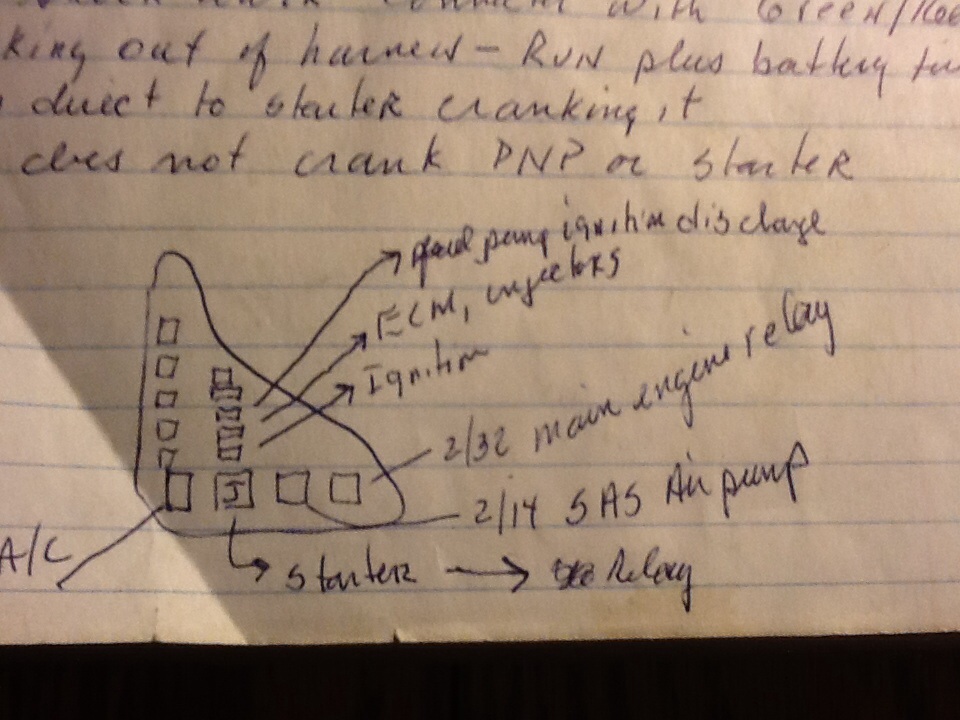 with Green/
king out of harness - RUN plus battery
direct to starter cranking, it
does not crank PNP or starter
pump ignition discharge
ECM, injectors
Ignition
2/32 main engine relay
2/14 SAS Air pump
A/C
starter → Relay